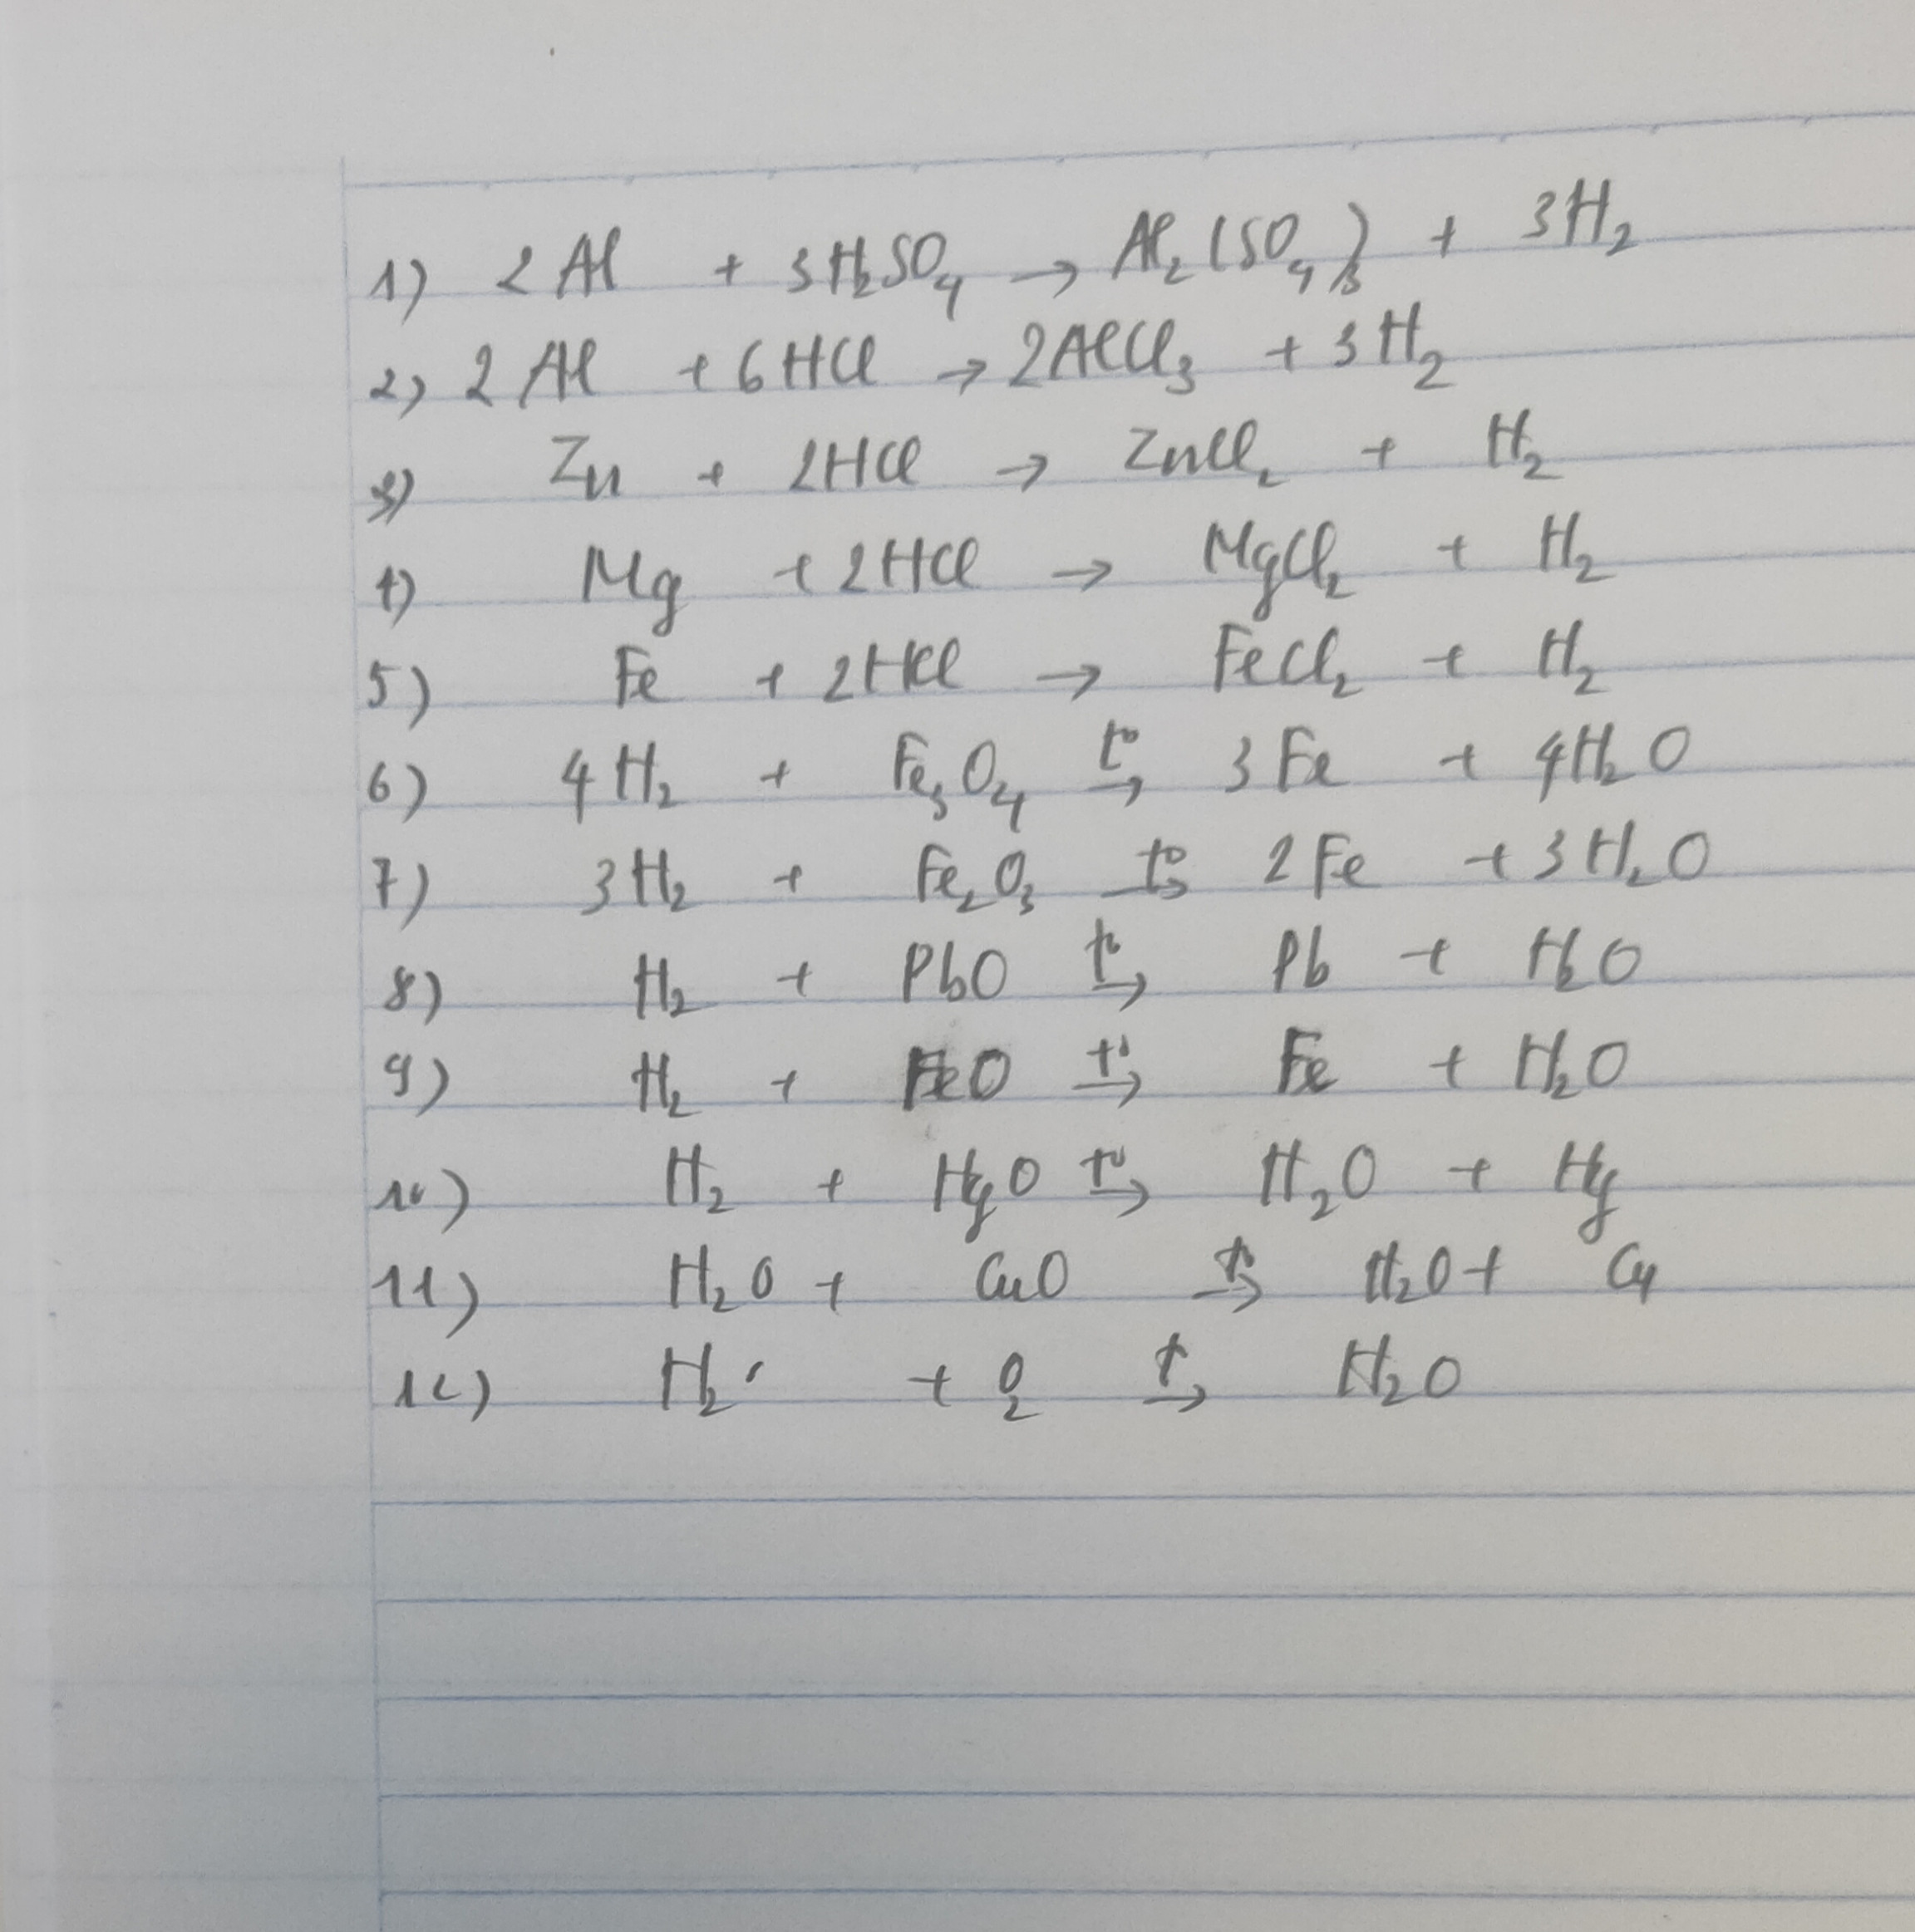 1) 2Al + 3H₂SO₄ → Al₂(SO₄)₃ + 3H₂
2) 2Al + 6HCl → 2AlCl₃ + 3H₂
3) Zn + 2HCl → ZnCl₂ + H₂
4) Mg + 2HCl → MgCl₂ + H₂
5) Fe + 2HCl → FeCl₂ + H₂
6) 4H₂ + Fe₃O₄ t°→ 3Fe + 4H₂O
7) 3H₂ + Fe₂O₃ t°→ 2Fe + 3H₂O
8) H₂ + PbO t°→ Pb + H₂O
9) H₂ + FeO t°→ Fe + H₂O
10) H₂ + HgO t°→ H₂O + Hg
11) H₂O + CuO t°→ H₂O + Cu
12) H₂ + O₂ t°→ H₂O